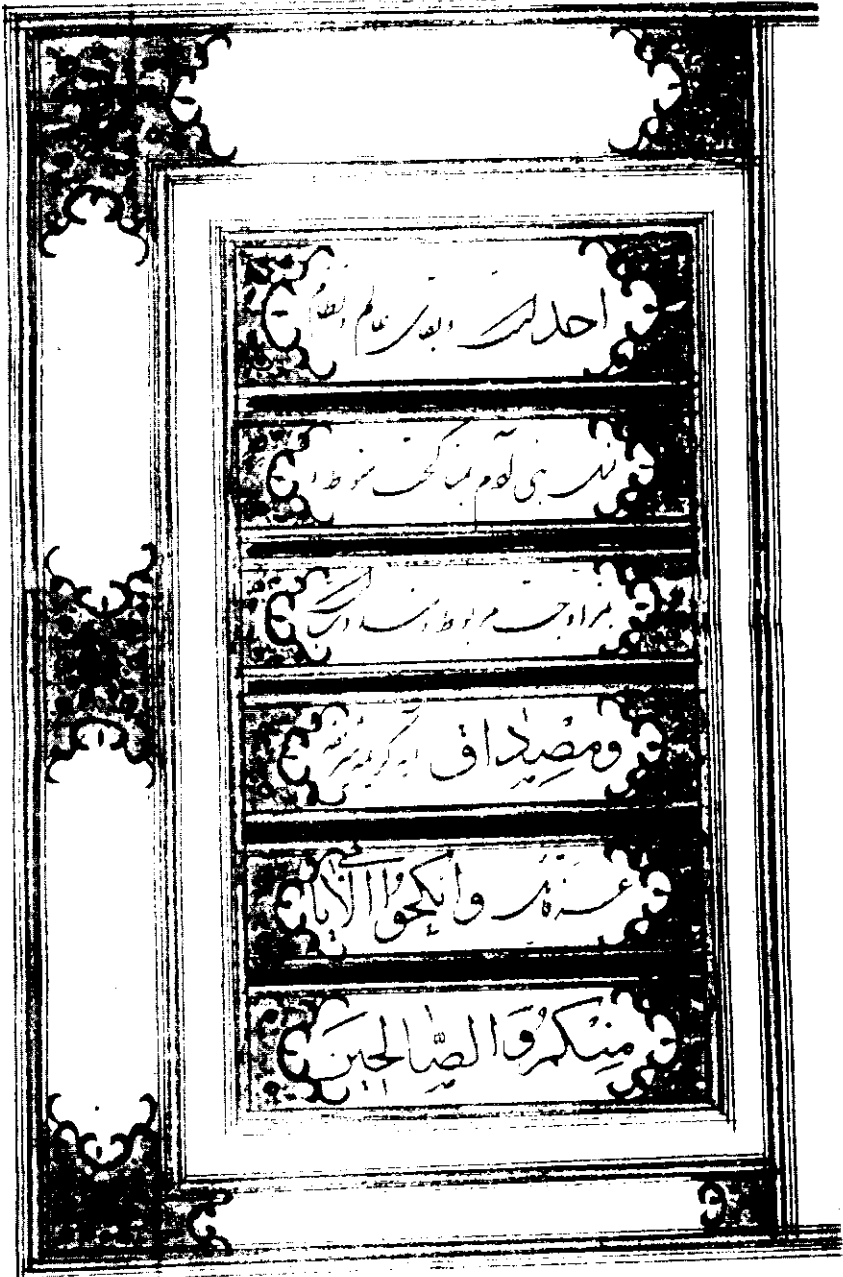 احدیت و بقای عالم و نظام
بنی آدم بمناکحت منوط و
بمزاوجت مربوط
ومصداق آیه کریمه
وانکحوا الایا
منكم والصالحين